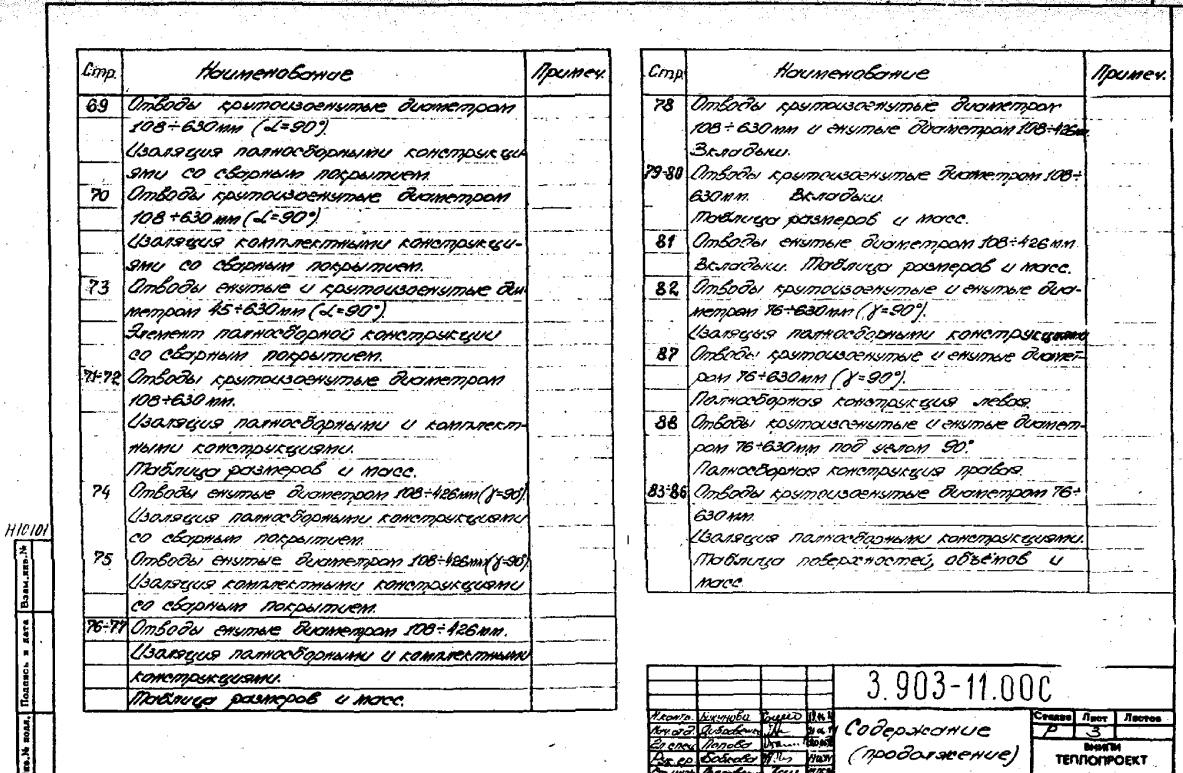 Стр. Наименование Примеч.
69 Отводы крутоизогнутые диаметром
108÷630мм (α=90°).
Изоляция полносборными конструкци-
ями со сварным покрытием.
70 Отводы крутоизогнутые диаметром
108÷630мм (α=90°)
Изоляция комплектными конструкци-
ями со сварным покрытием.
73 Отводы гнутые и крутоизогнутые диа-
метром 45÷630мм (α=90°).
Элемент полносборной конструкции
со сварным покрытием.
71-72 Отводы крутоизогнутые диаметром
108÷630мм.
Изоляция полносборными и комплект-
ными конструкциями.
Таблица размеров и масс.
74 Отводы гнутые диаметром 108÷426мм (γ=90°).
Изоляция полносборными конструкциями
со сварным покрытием.
75 Отводы гнутые диаметром 108÷426мм (γ=90°)
Изоляция комплектными конструкциями
со сварным покрытием.
76-77 Отводы гнутые диаметром 108÷426мм.
Изоляция полносборными и комплектными
конструкциями.
Таблица размеров и масс.
Стр. Наименование Примеч.
78 Отводы крутоизогнутые диаметром
108÷630мм и гнутые диаметром 108÷426мм
Вкладыш.
79-80 Отводы крутоизогнутые диаметром 108÷
630мм. Вкладыш.
Таблица размеров и масс.
81 Отводы гнутые диаметром 108÷426мм
Вкладыш. Таблица размеров и масс.
82 Отводы крутоизогнутые и гнутые диа-
метром 76÷630мм (γ=90°).
Изоляция полносборными конструкциями
87 Отводы крутоизогнутые и гнутые диамет-
ром 76÷630мм (γ=90°).
Полносборная конструкция левая.
88 Отводы крутоизогнутые и гнутые диамет-
ром 76÷630мм под углом 90°.
Полносборная конструкция правая.
83-86 Отводы крутоизогнутые диаметром 76÷
630мм.
Изоляция полносборными конструкциями.
Таблица поверхностей, объёмов и
масс
Н10101
Взам.инв.№
Подпись и дата
подл.
3.903-11.00С
Н.контр.
Попова
Содержание
(продолжение)
Стадия Лист Листов
Р 3
ВНИПИ
ТЕПЛОПРОЕКТ